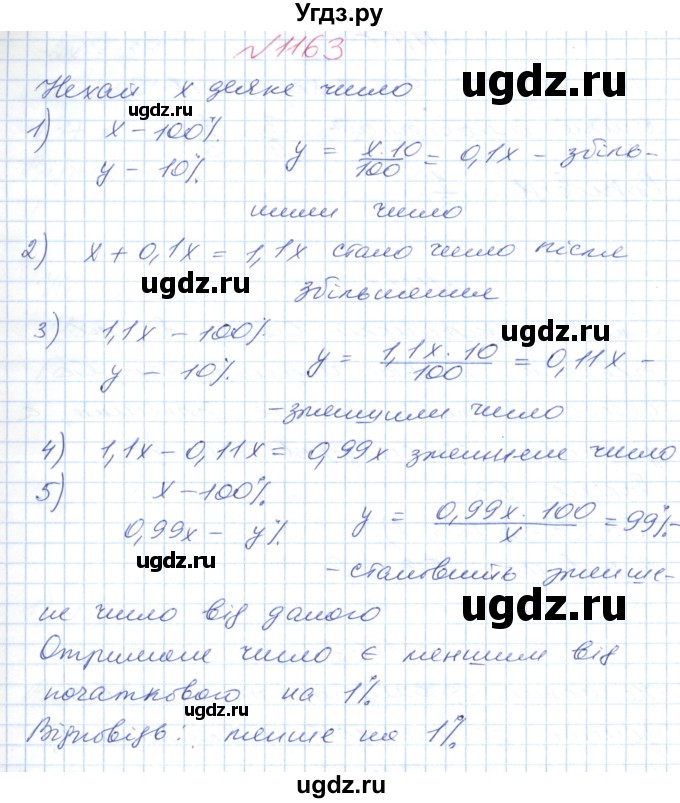 Угдз.ру
№1163
Нехай х деяке число
1) x – 100%
y – 10%
y = x·10/100 = 0,1x – збіль-
шили число
2) x + 0,1x = 1,1x стало число після
збільшення
3) 1,1x – 100%
y – 10%
y = 1,1x·10/100 = 0,11x –
– зменшили число
4) 1,1x – 0,11x = 0,99x зменшене число
5) x – 100%
0,99x – y%
y = 0,99x·100/x = 99% –
– становить зменше-
не число від даного
Отримане число є меншим від
початкового на 1%
Відповідь: менше на 1%
ugdz.ru
ugdz.ru
ugdz.ru
ugdz.ru
ugdz.ru
ugdz.ru
ugdz.ru
ugdz.ru
ugdz.ru
ugdz.ru
ugdz.ru